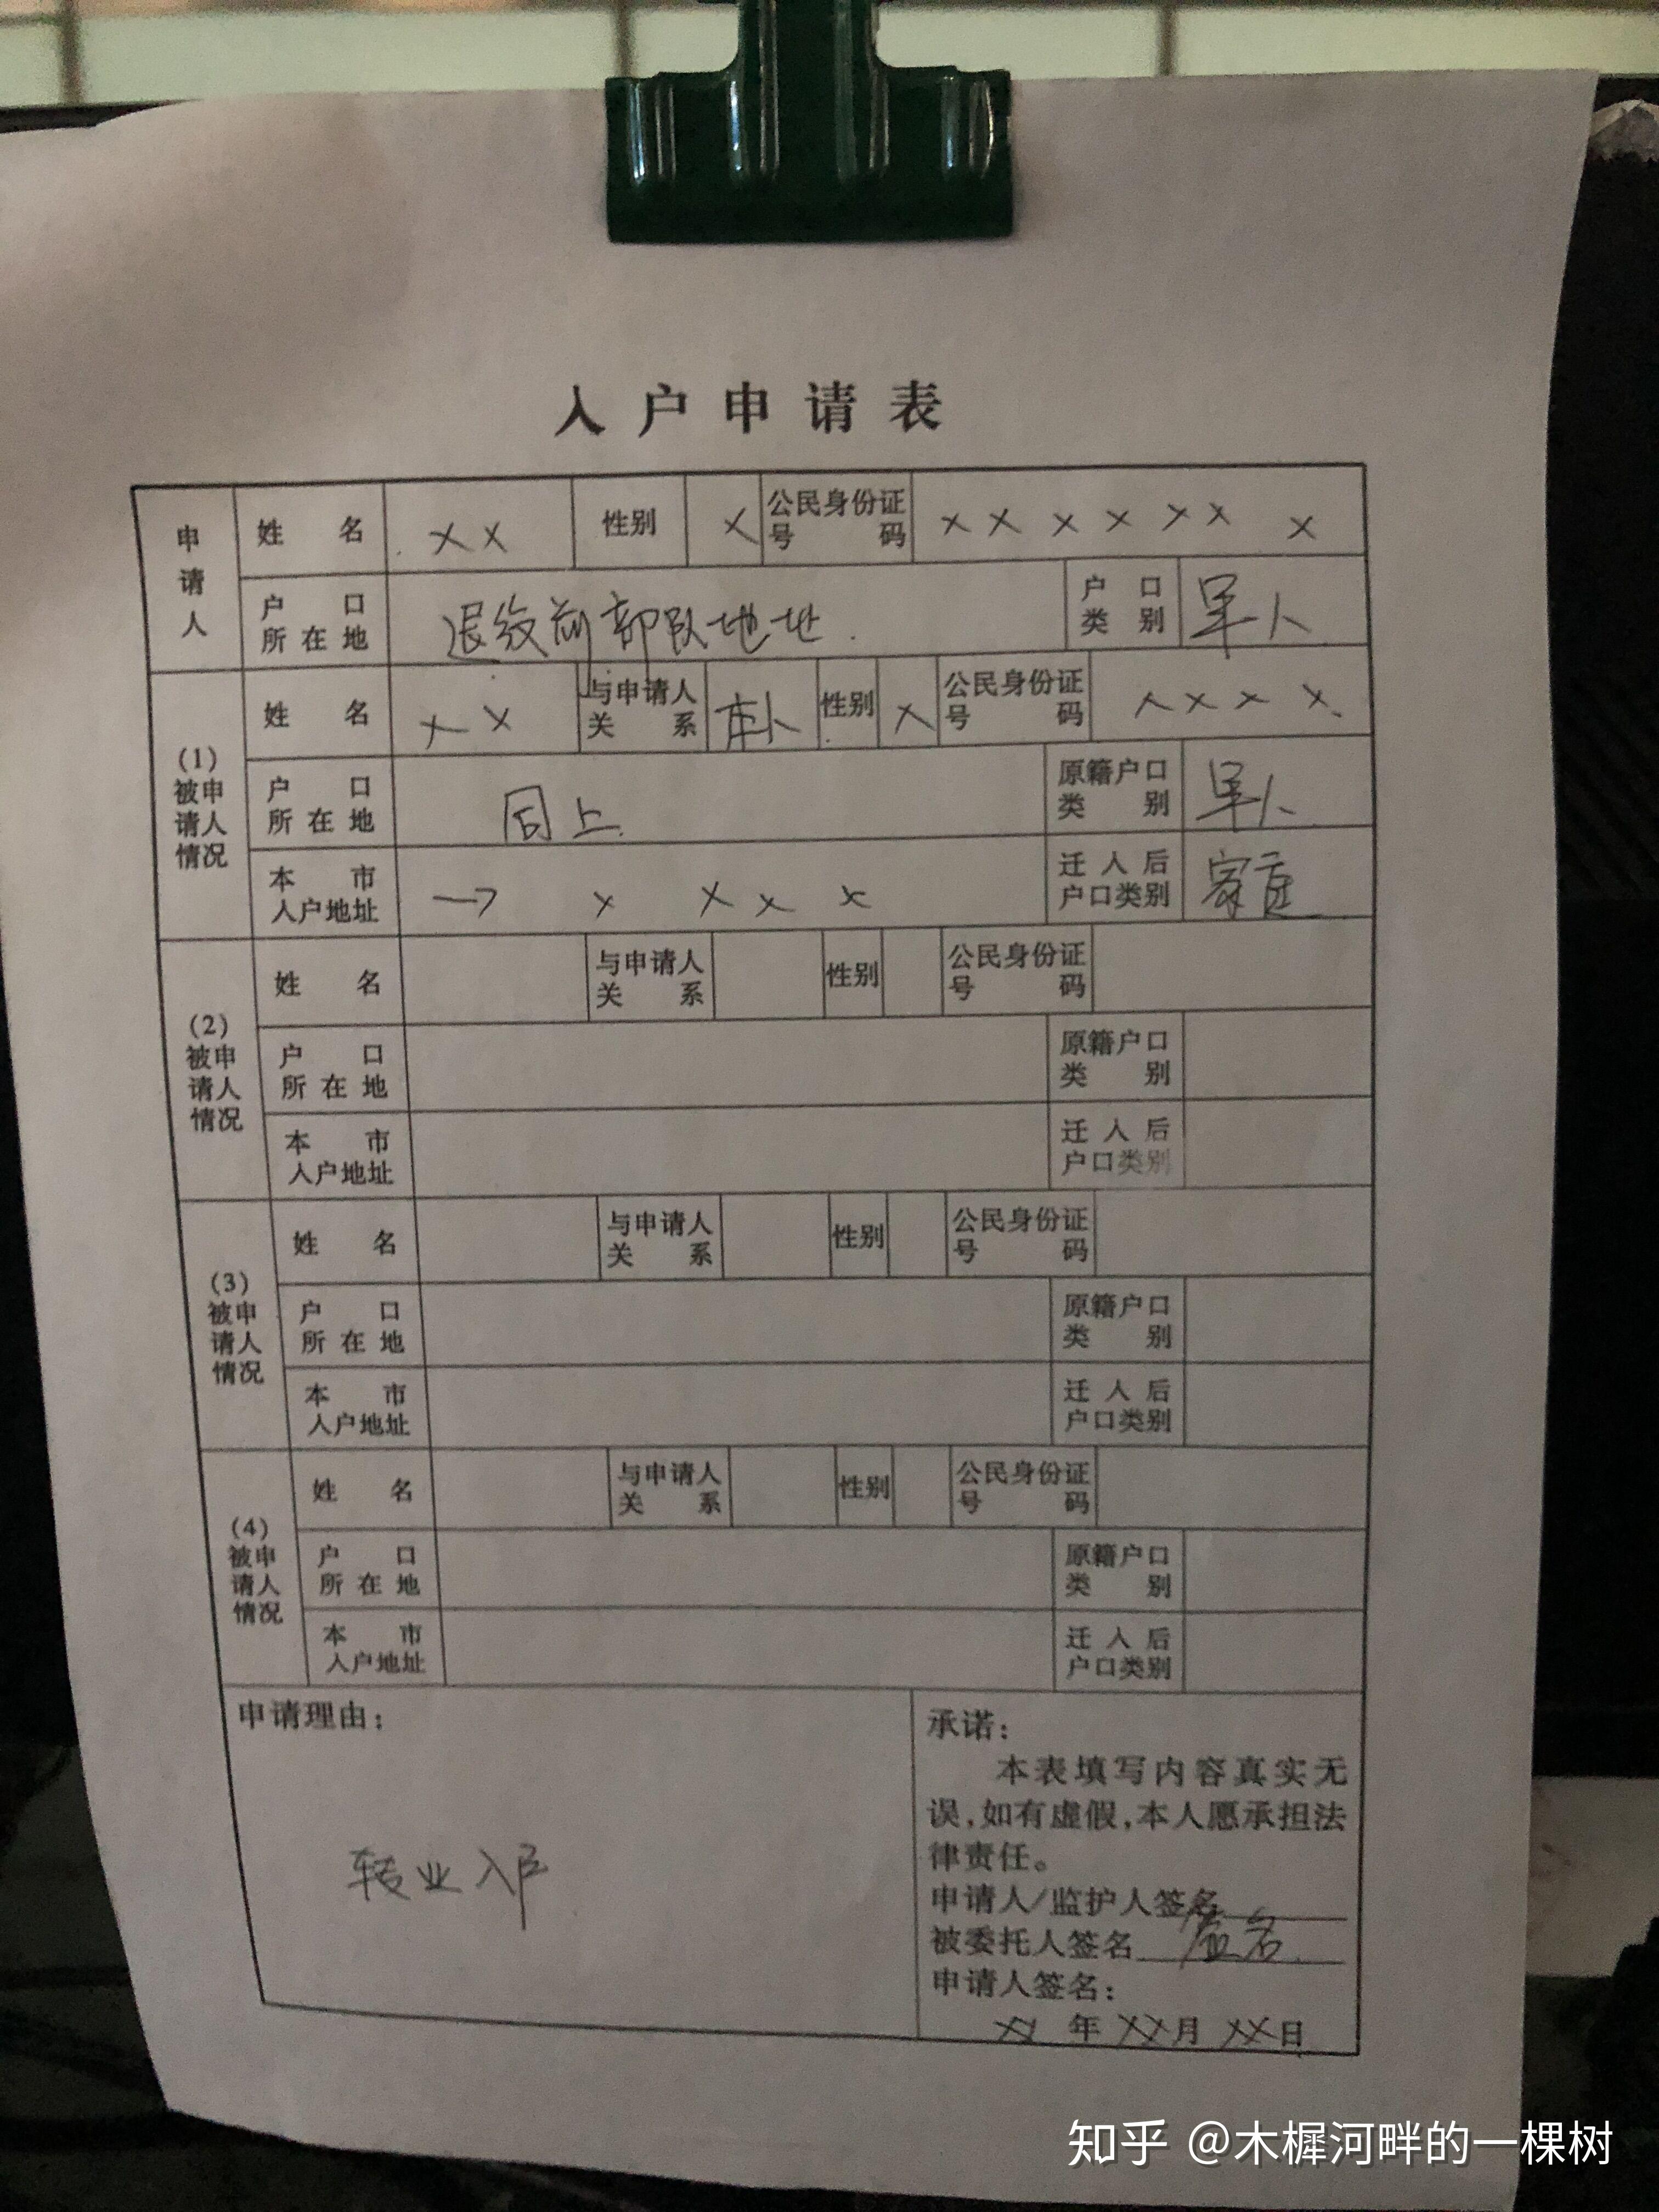 入户申请表
申请人 姓名 ×× 性别 × 公民身份证号码 ×××××× ×
户口所在地 退役前部队地址. 户口类别 军人
(1)被申请人情况 姓名 ×× 与申请人关系 本人 性别 × 公民身份证号码 ××××.
户口所在地 同上. 原籍户口类别 军人
本市入户地址 → × × × × 迁入后户口类别 家庭
(2)被申请人情况 姓名 与申请人关系 性别 公民身份证号码
户口所在地 原籍户口类别
本市入户地址 迁入后户口类别
(3)被申请人情况 姓名 与申请人关系 性别 公民身份证号码
户口所在地 原籍户口类别
本市入户地址 迁入后户口类别
(4)被申请人情况 姓名 与申请人关系 性别 公民身份证号码
户口所在地 原籍户口类别
本市入户地址 迁入后户口类别
申请理由:
转业入户
承诺:
本表填写内容真实无
误,如有虚假,本人愿承担法
律责任。
申请人/监护人签名
被委托人签名 签名.
申请人签名:
×× 年 ×× 月 ×× 日
知乎 @木樨河畔的一棵树